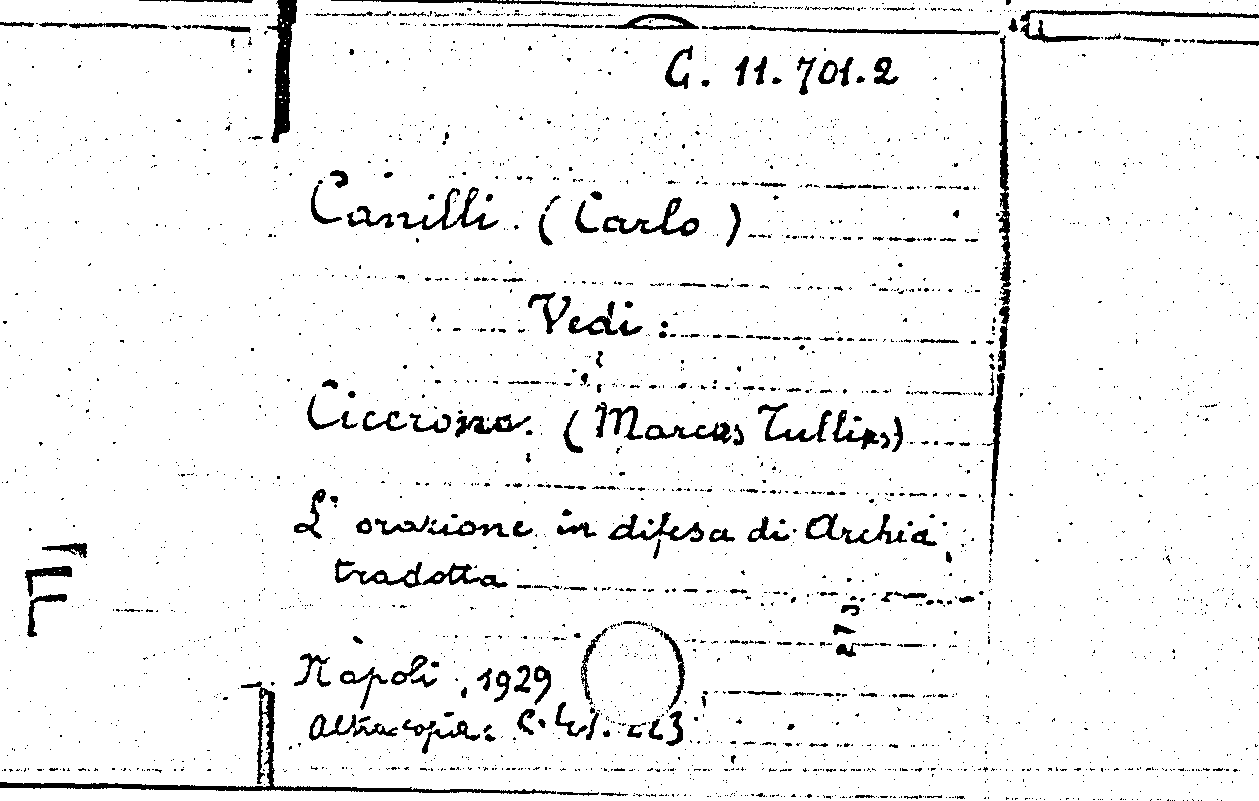 G. 11.701.2
Canilli (Carlo)
Vedi:
(Marcus Tullius)
L'orazione in difesa di Archia,
tradotta
Napoli, 1929
Altra copia:
F